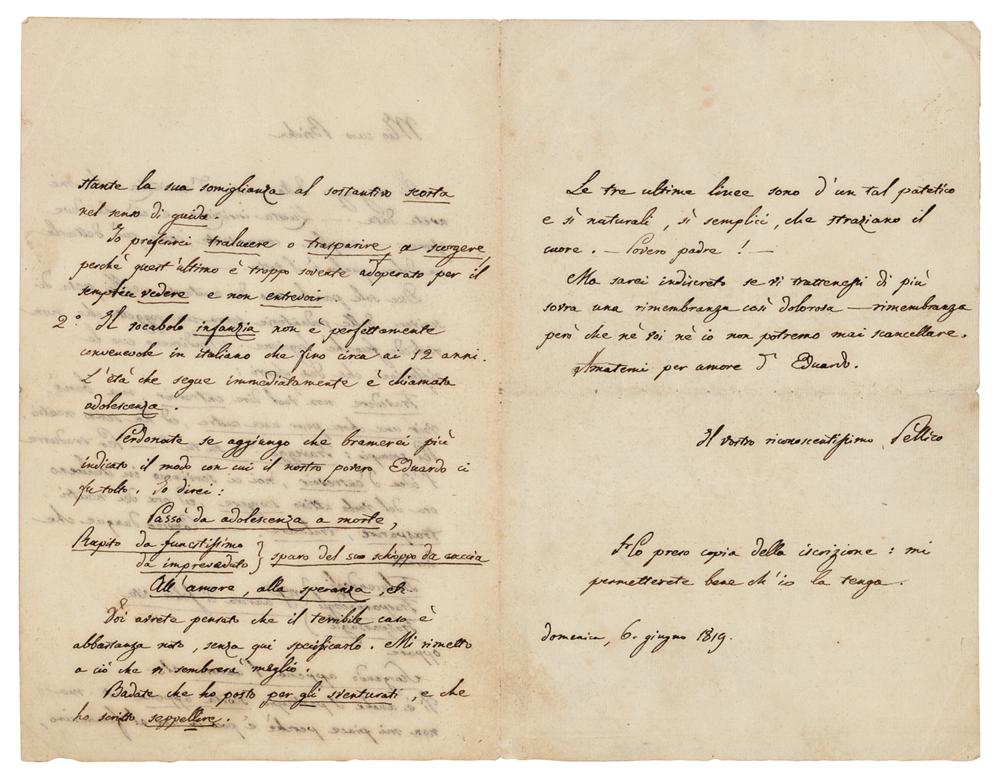 stante la sua somiglianza al sostantivo scorta
nel senso di guida.
Io preferirei tralucere o trasparire a scorgere,
perchè quest'ultimo è troppo sovente adoperato per il
semplice vedere e non entrevoir
2.° Il vocabolo infanzia non è perfettamente
convenevole in italiano che fino circa ai 12 anni.
L'età che segue immediatamente è chiamata
adolescenza.
Perdonate se aggiungo che bramerei più
indicato il modo con cui il nostro povero Eduardo ci
fu tolto. Io direi:
Passò da adolescenza a morte,
Rapito da funestissimo
da impreveduto } sparo del suo schioppo da caccia
All'amore, alla speranza, etc.
Voi avrete pensato che il terribile caso è
abbastanza noto, senza qui specificarlo. Mi rimetto
a ciò che vi sembrerà meglio.
Badate che ho posto per gli sventurati, e che
ho scritto seppellire.
Le tre ultime linee sono d'un tal patetico
e sì naturali, sì semplici, che straziano il
cuore. — Povero padre! —
Ma sarei indiscreto se vi trattenessi di più
sovra una rimembranza così dolorosa — rimembranza
però che nè voi nè io non potremo mai scancellare.
Amatemi per amore d' Eduardo.
Il vostro riconoscentissimo Pellico
Ho preso copia della iscrizione: mi
permetterete bene ch'io la tenga.
domenica, 6. giugno 1819.